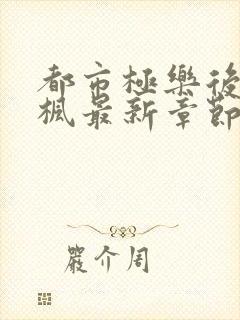 都市極樂後
楓最新章節
嚴介周